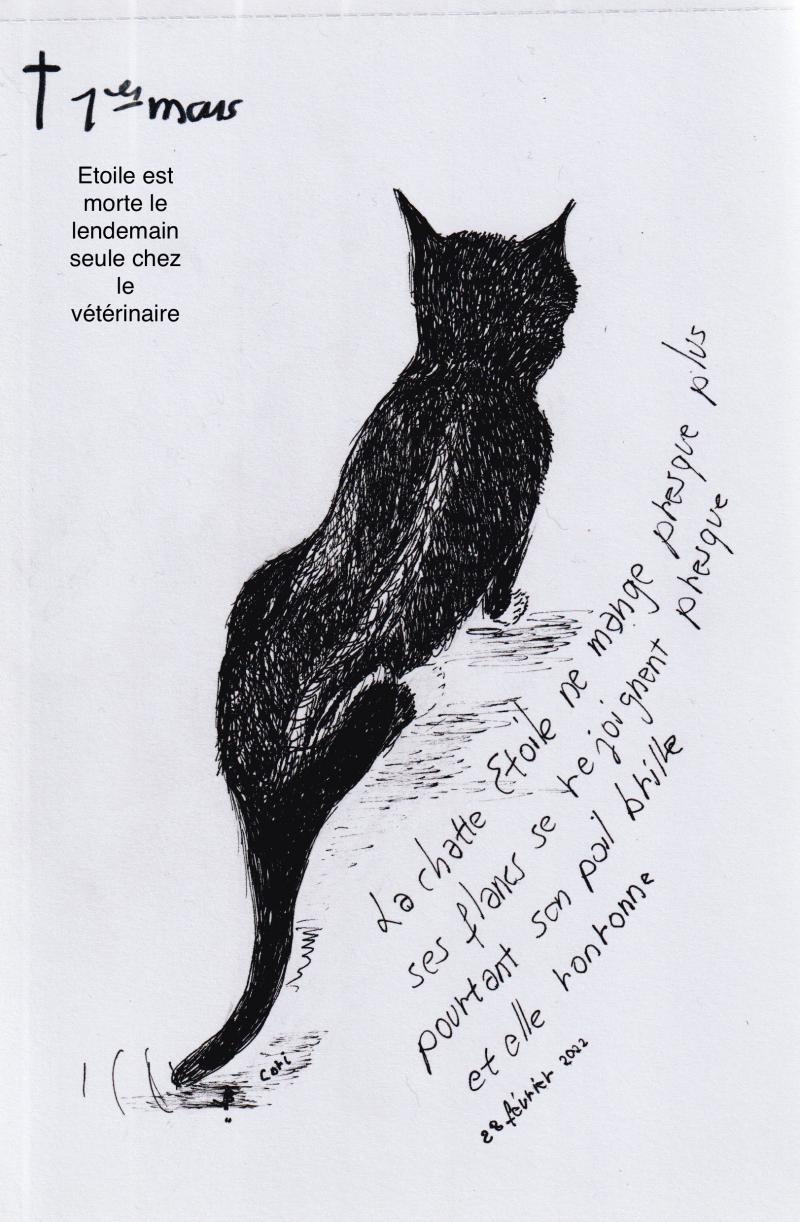 † 1er mars
Etoile est
morte le
lendemain
seule chez
le
vétérinaire
La chatte Etoile ne mange presque plus
ses flancs se rejoignent presque
pourtant son poil brille
et elle ronronne
28 février 2022
Cori